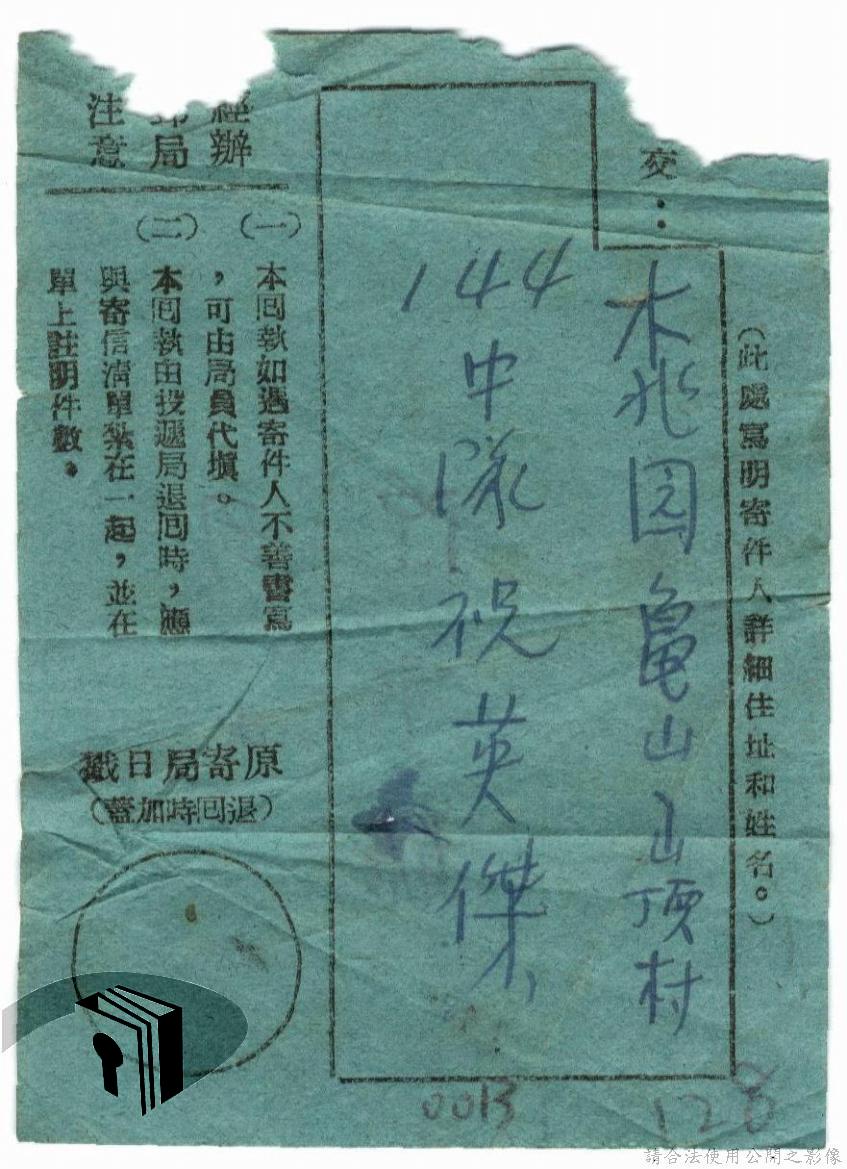 交：
（此處寫明寄件人詳細住址和姓名。）
桃园龜山山頂村
144中隊祝英傑
經辦
郵局
注意
（一）本回執如遇寄件人不善書寫
，可由局員代填。
（二）本回執由投遞局退回時，應
與寄信清單紮在一起，並在
單上註明件數。
原寄局日戳
（退回時加蓋）
0013
128
請合法使用公開之影像